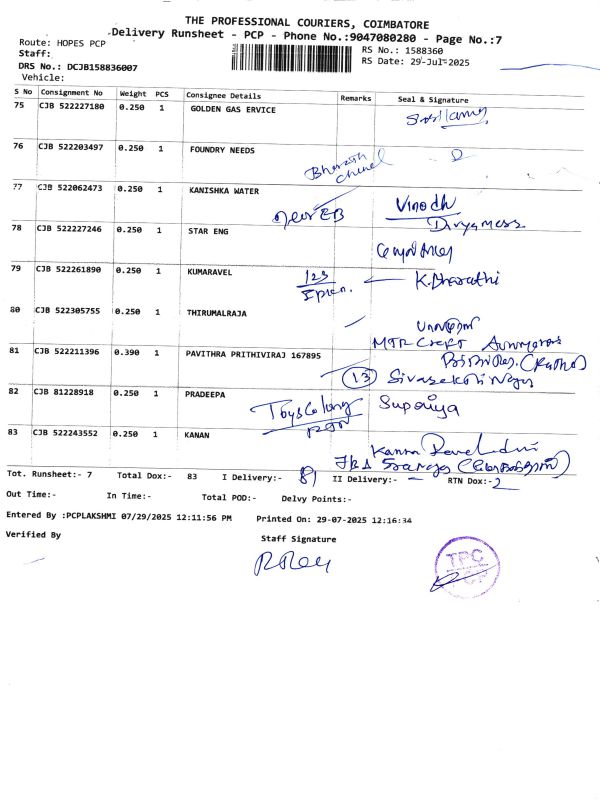 THE PROFESSIONAL COURIERS, COIMBATORE
Delivery Runsheet - PCP - Phone No.:9047080280 - Page No.:7
Route: HOPES PCP
RS No.: 1588360
Staff:
RS Date: 29-Jul-2025
DRS No.: DCJB158836007
Vehicle:
S No Consignment No Weight PCS Consignee Details Remarks Seal & Signature
75 CJB 522227180 0.250 1 GOLDEN GAS ERVICE
76 CJB 522203497 0.250 1 FOUNDRY NEEDS
Bharath
77 CJB 522062473 0.250 1 KANISHKA WATER
near EB Vinodh
Divyamess
78 CJB 522227246 0.250 1 STAR ENG
79 CJB 522261890 0.250 1 KUMARAVEL
123 K.Bharathi
80 CJB 522305755 0.250 1 THIRUMALRAJA
81 CJB 522211396 0.390 1 PAVITHRA PRITHIVIRAJ 167895
13
82 CJB 81228918 0.250 1 PRADEEPA
Supriya
83 CJB 522243552 0.250 1 KANAN
Tot. Runsheet:- 7 Total Dox:- 83 I Delivery:- 81 II Delivery:- RTN Dox:- 2
Out Time:- In Time:- Total POD:- Delvy Points:-
Entered By :PCPLAKSHMI 07/29/2025 12:11:56 PM Printed On: 29-07-2025 12:16:34
Verified By Staff Signature
TPC
PCP